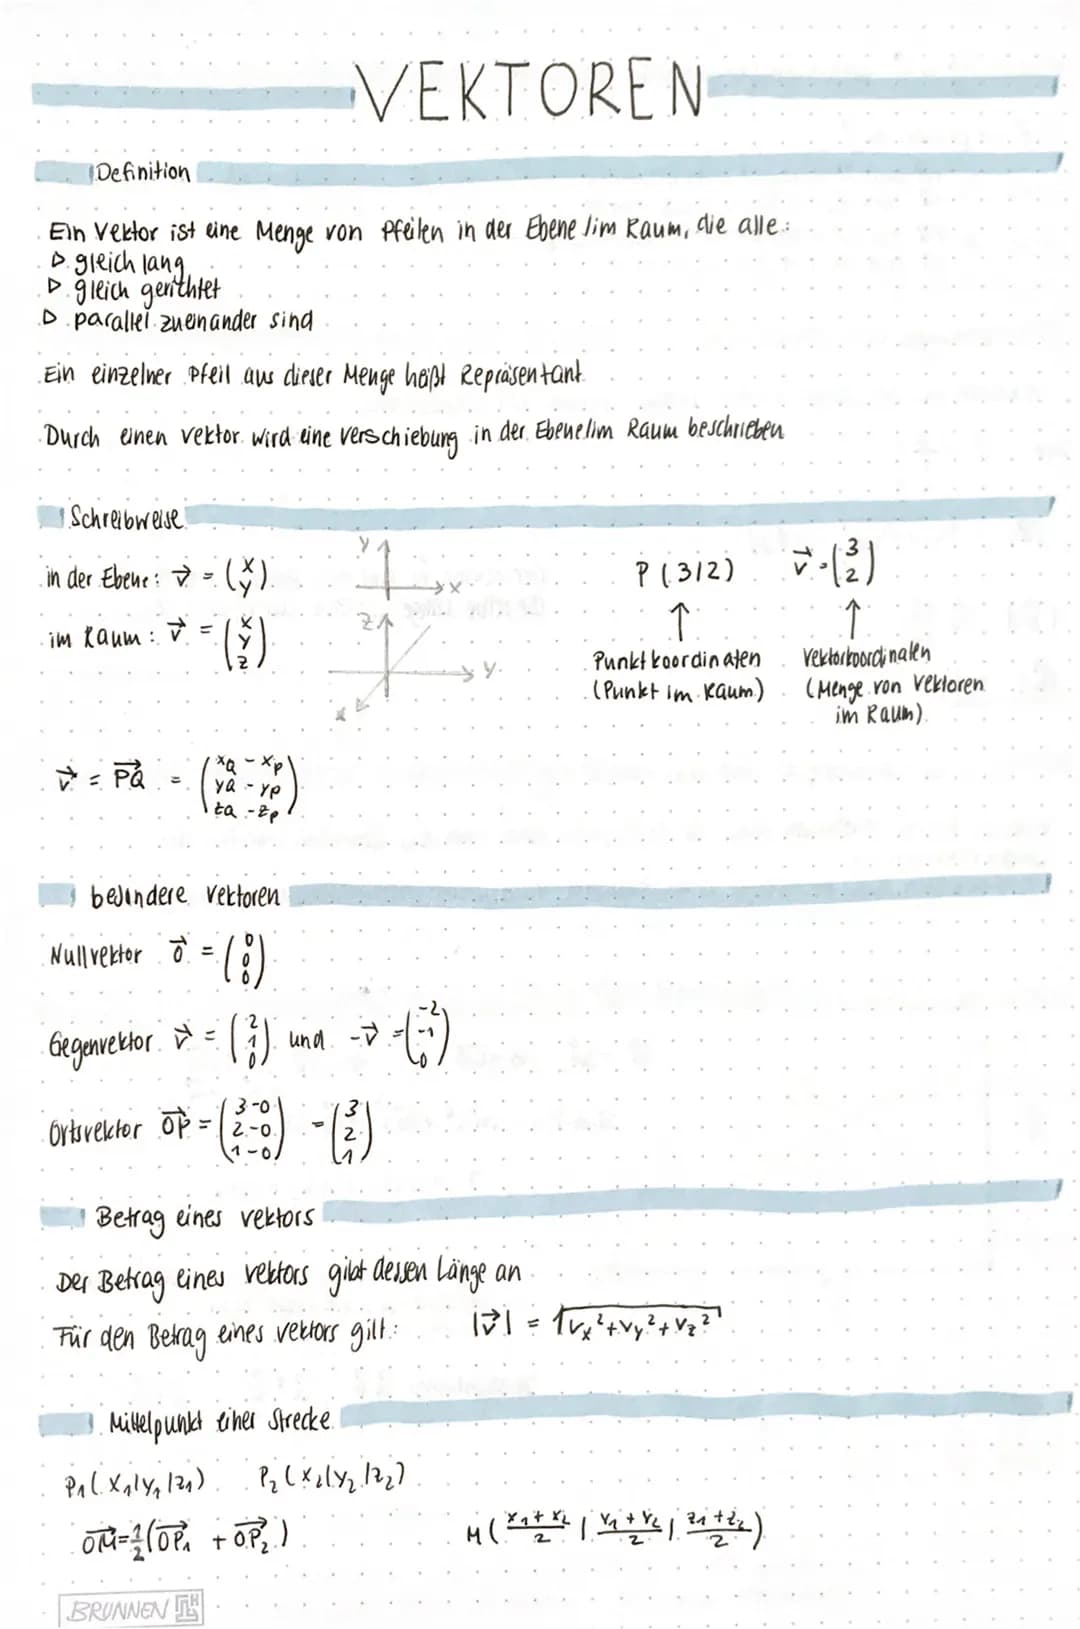 VEKTOREN
Definition
Ein Vektor ist eine Menge von Pfeilen in der Ebene /im Raum, die alle:
▷ gleich lang
▷ gleich gerichtet
▷ parallel zueinander sind
Ein einzelner Pfeil aus dieser Menge heißt Repräsentant.
Durch einen Vektor wird eine Verschiebung in der Ebene/im Raum beschrieben
Schreibweise
in der Ebene: v⃗ = (x y)
y x
P (3/2) v⃗ = (3 2)
im Raum: v⃗ = (x y z)
z y x
↑ ↑
Punktkoordinaten Vektorkoordinaten
(Punkt im Raum) (Menge von Vektoren
im Raum)
v⃗ = P⃗Q⃗ = (xQ - xP yQ - yP zQ - zP)
besondere Vektoren
Nullvektor o⃗ = (0 0 0)
Gegenvektor v⃗ = (2 1 0) und -v⃗ = (-2 -1 0)
Ortsvektor O⃗P⃗ = (3-0 2-0 1-0) = (3 2 1)
Betrag eines Vektors
Der Betrag eines Vektors gibt dessen Länge an
Für den Betrag eines Vektors gilt: |v⃗| = √(vx² + vy² + vz²)
Mittelpunkt einer Strecke
P₁ (x₁/y₁/z₁) P₂ (x₂/y₂/z₂)
O⃗M⃗ = ½ (O⃗P⃗₁ + O⃗P⃗₂) M ((x₁ + x₂)/2 | (y₁ + y₂)/2 | (z₁ + z₂)/2)
BRUNNEN